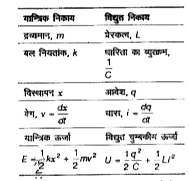 यान्त्रिक निकाय विद्युत निकाय
द्रव्यमान, m प्रेरकत्व, L
बल नियतांक, k धारिता का व्युत्क्रम,
1/C
विस्थापन x आवेश, q
वेग, v = dx/dt धारा, i = dq/dt
यान्त्रिक ऊर्जा विद्युत चुम्बकीय ऊर्जा
E = 1/2 kx² + 1/2 mv² U = 1/2 q²/C + 1/2 Li²